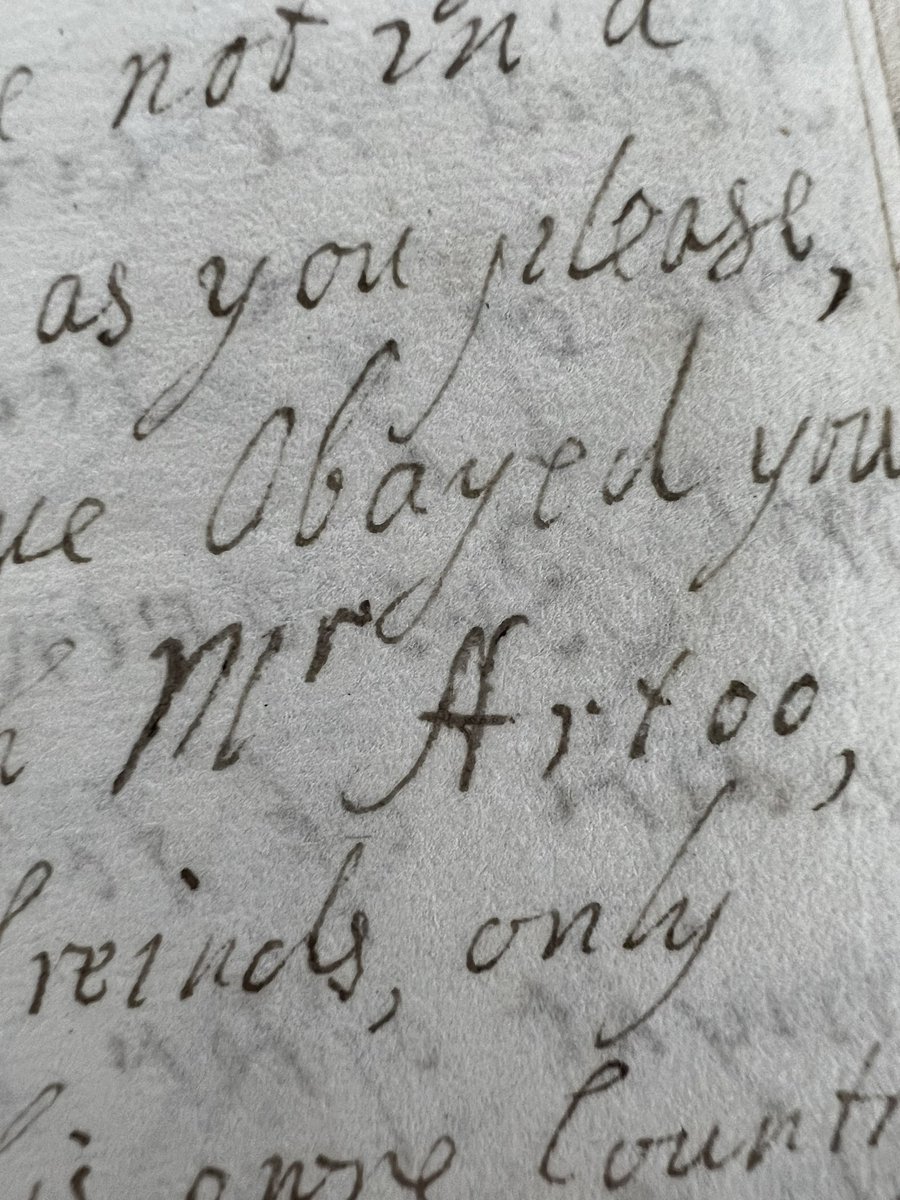 not in a
as you please,
Obayed you
Mr Artoo,
freinds, only
his owne Countr